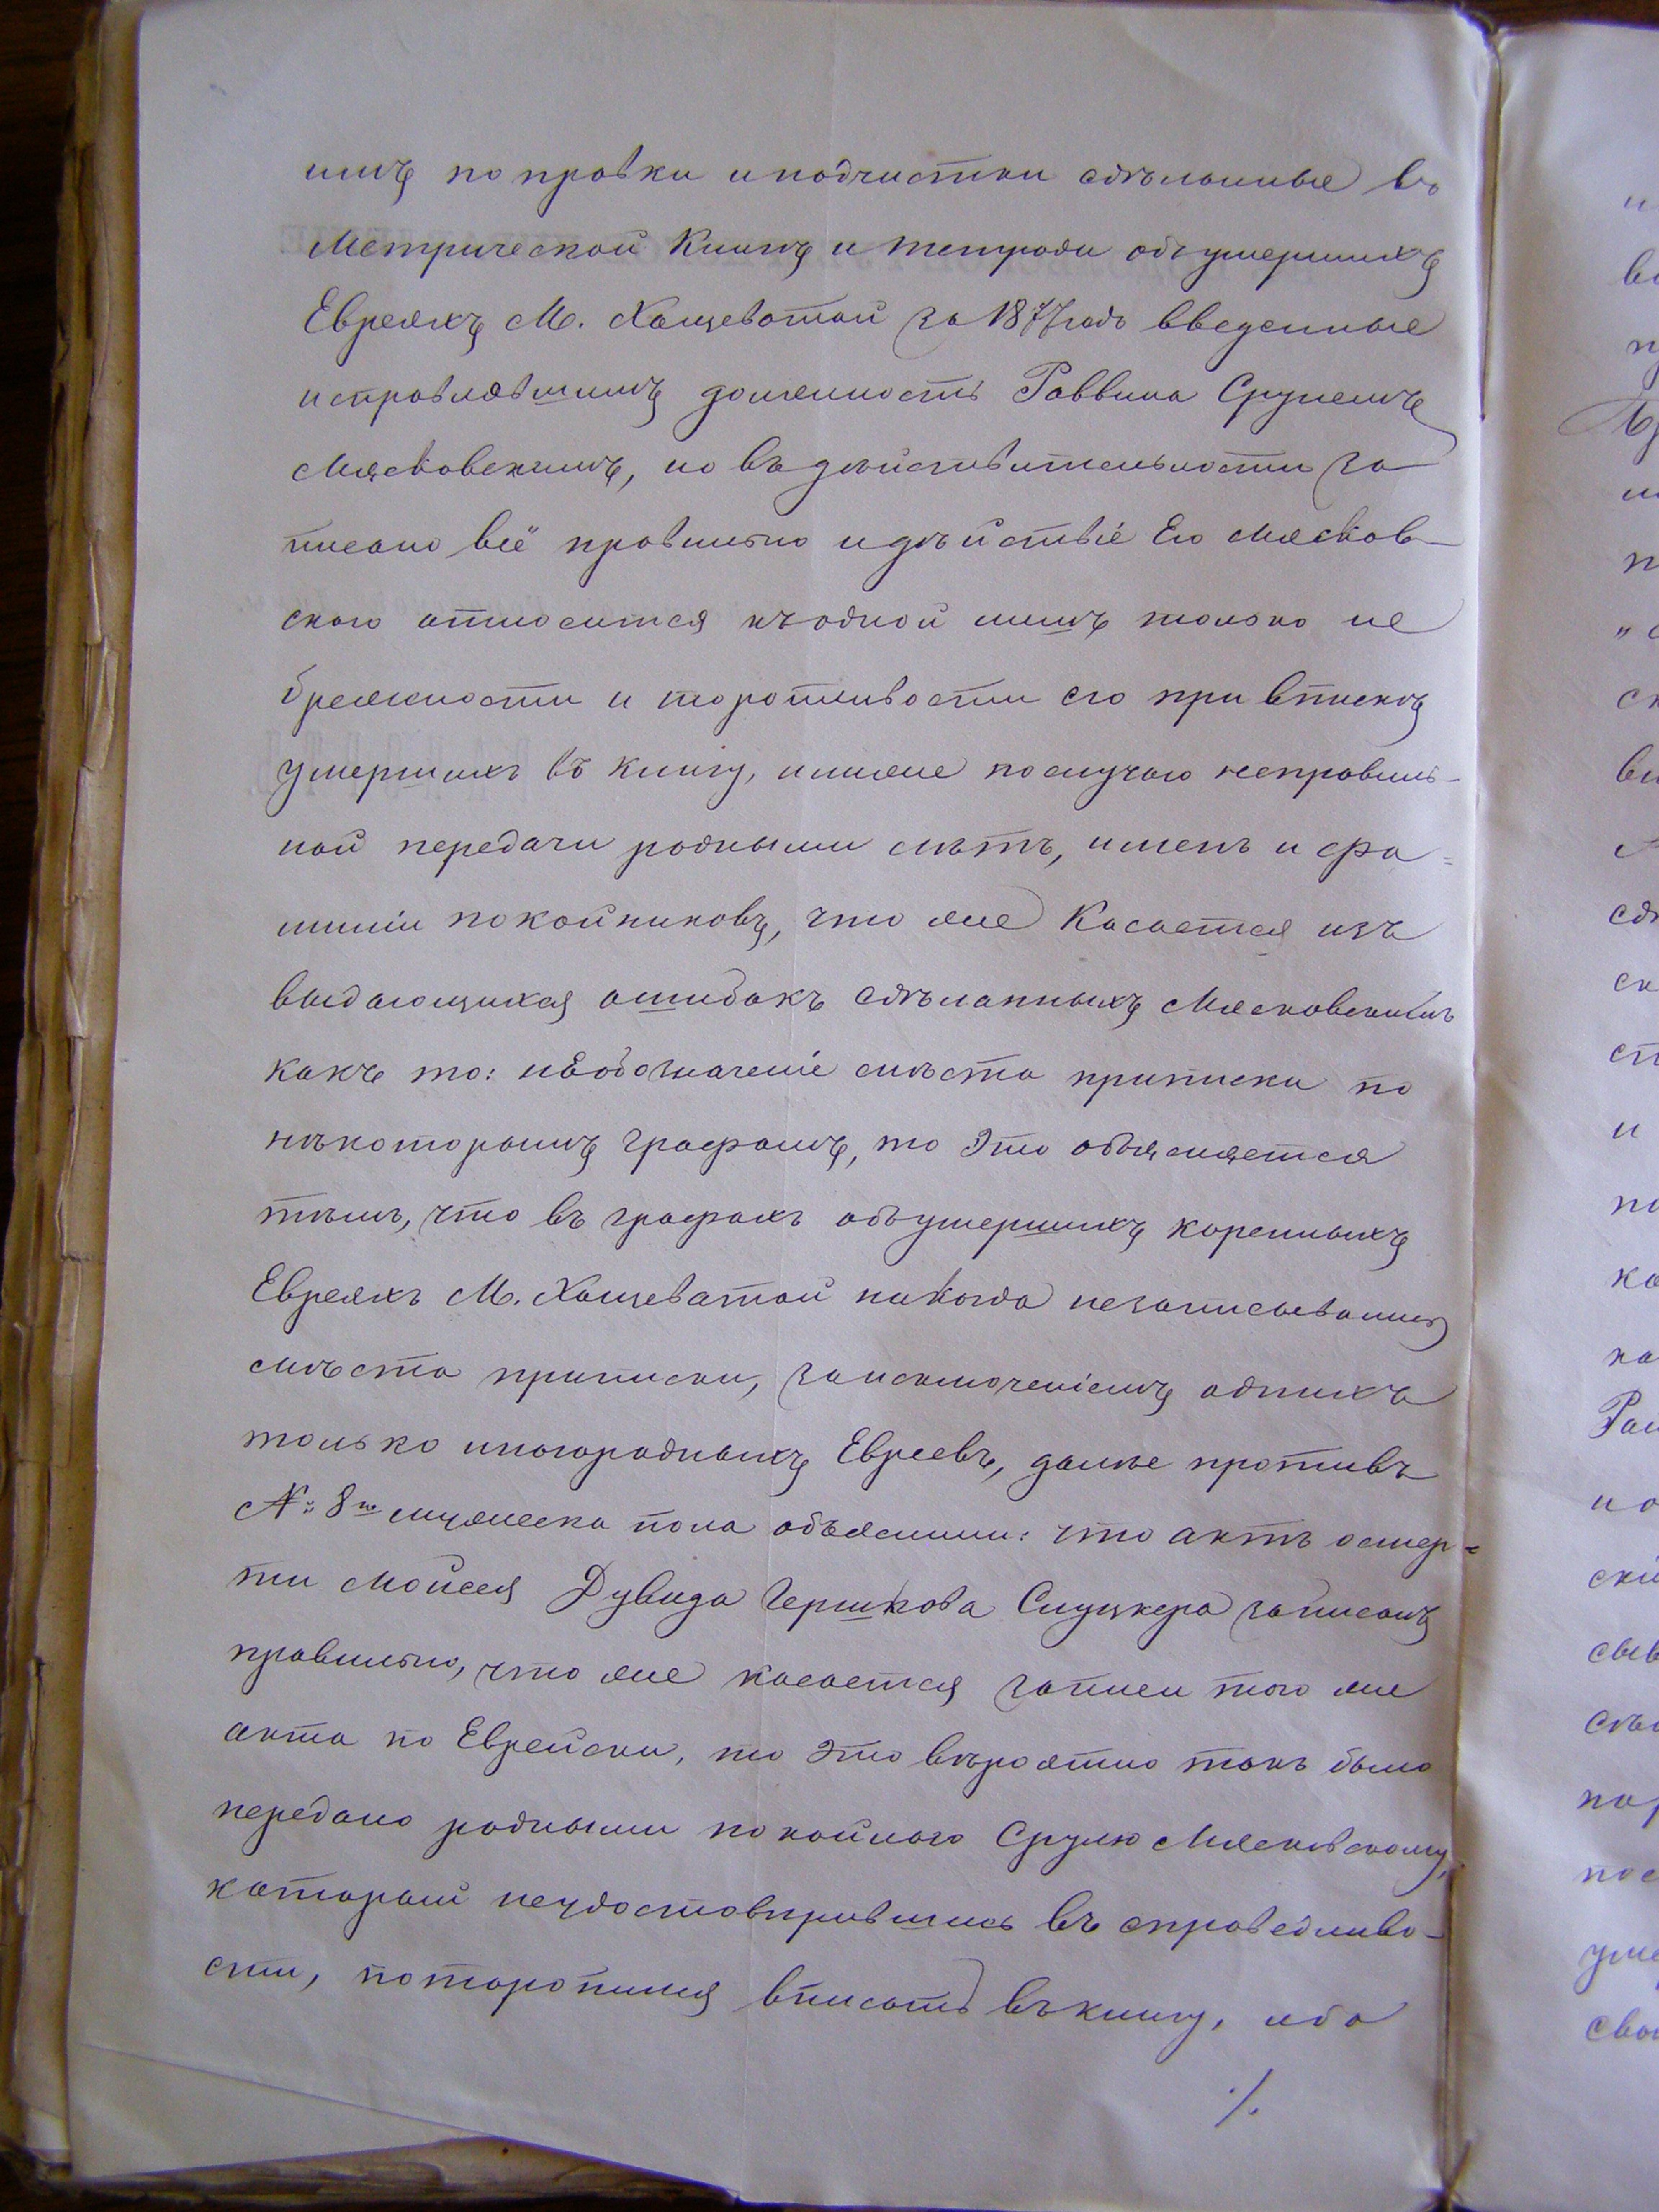 шихъ поправки и подчистки сдѣланные въ
Метрической Книгѣ и тетради объ умершихъ
Евреяхъ М. Хащеватой за 1877 годъ введенные
исправлявшимъ должность Раввина Срулемъ
Мясковскимъ, но въ дѣйствительности за
писано всё правильно и дѣйствіе Его Мясков-
скаго относится къ одной лишь только не
брежности и торопливости его при впискѣ
умершихъ въ книгу, илиже послучаю неправиль-
ной передачи родными лѣтъ, именъ и фа=
миліи покойниковъ, что же Касается изъ
выдающихся ошибокъ сдѣланныхъ Мясковскимъ
какъ то: необозначеніе мѣста приписки по
нѣкоторымъ графамъ, то это объясняется
тѣмъ, что въ графахъ объ умершихъ коренныхъ
Евреяхъ М. Хащеватой никогда незаписывались
мѣста приписки, заисключеніемъ однихъ
только иногородныхъ Евреевъ, далѣе противъ
№ 8го мужеска пола объяснили: что актъ о смер=
ти Мойсея Дувида Гершкова Слуцкера записанъ
правильно, что же касается записи того же
акта по Еврейски, то это вѣроятно такъ было
передано родными покойнаго Срулю Мясковскому,
который неудостовѣрившись въ справедливо-
сти, поторопился вписать въ книгу, ибо
./.